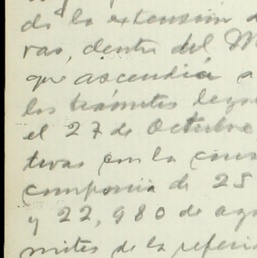 de la extension d
ras, dentro del M
que ascendia a
los trámites lega
el 27 de Octubre
tivas con la cons
compania de 25
y 22,980 de agu
mites de la referi